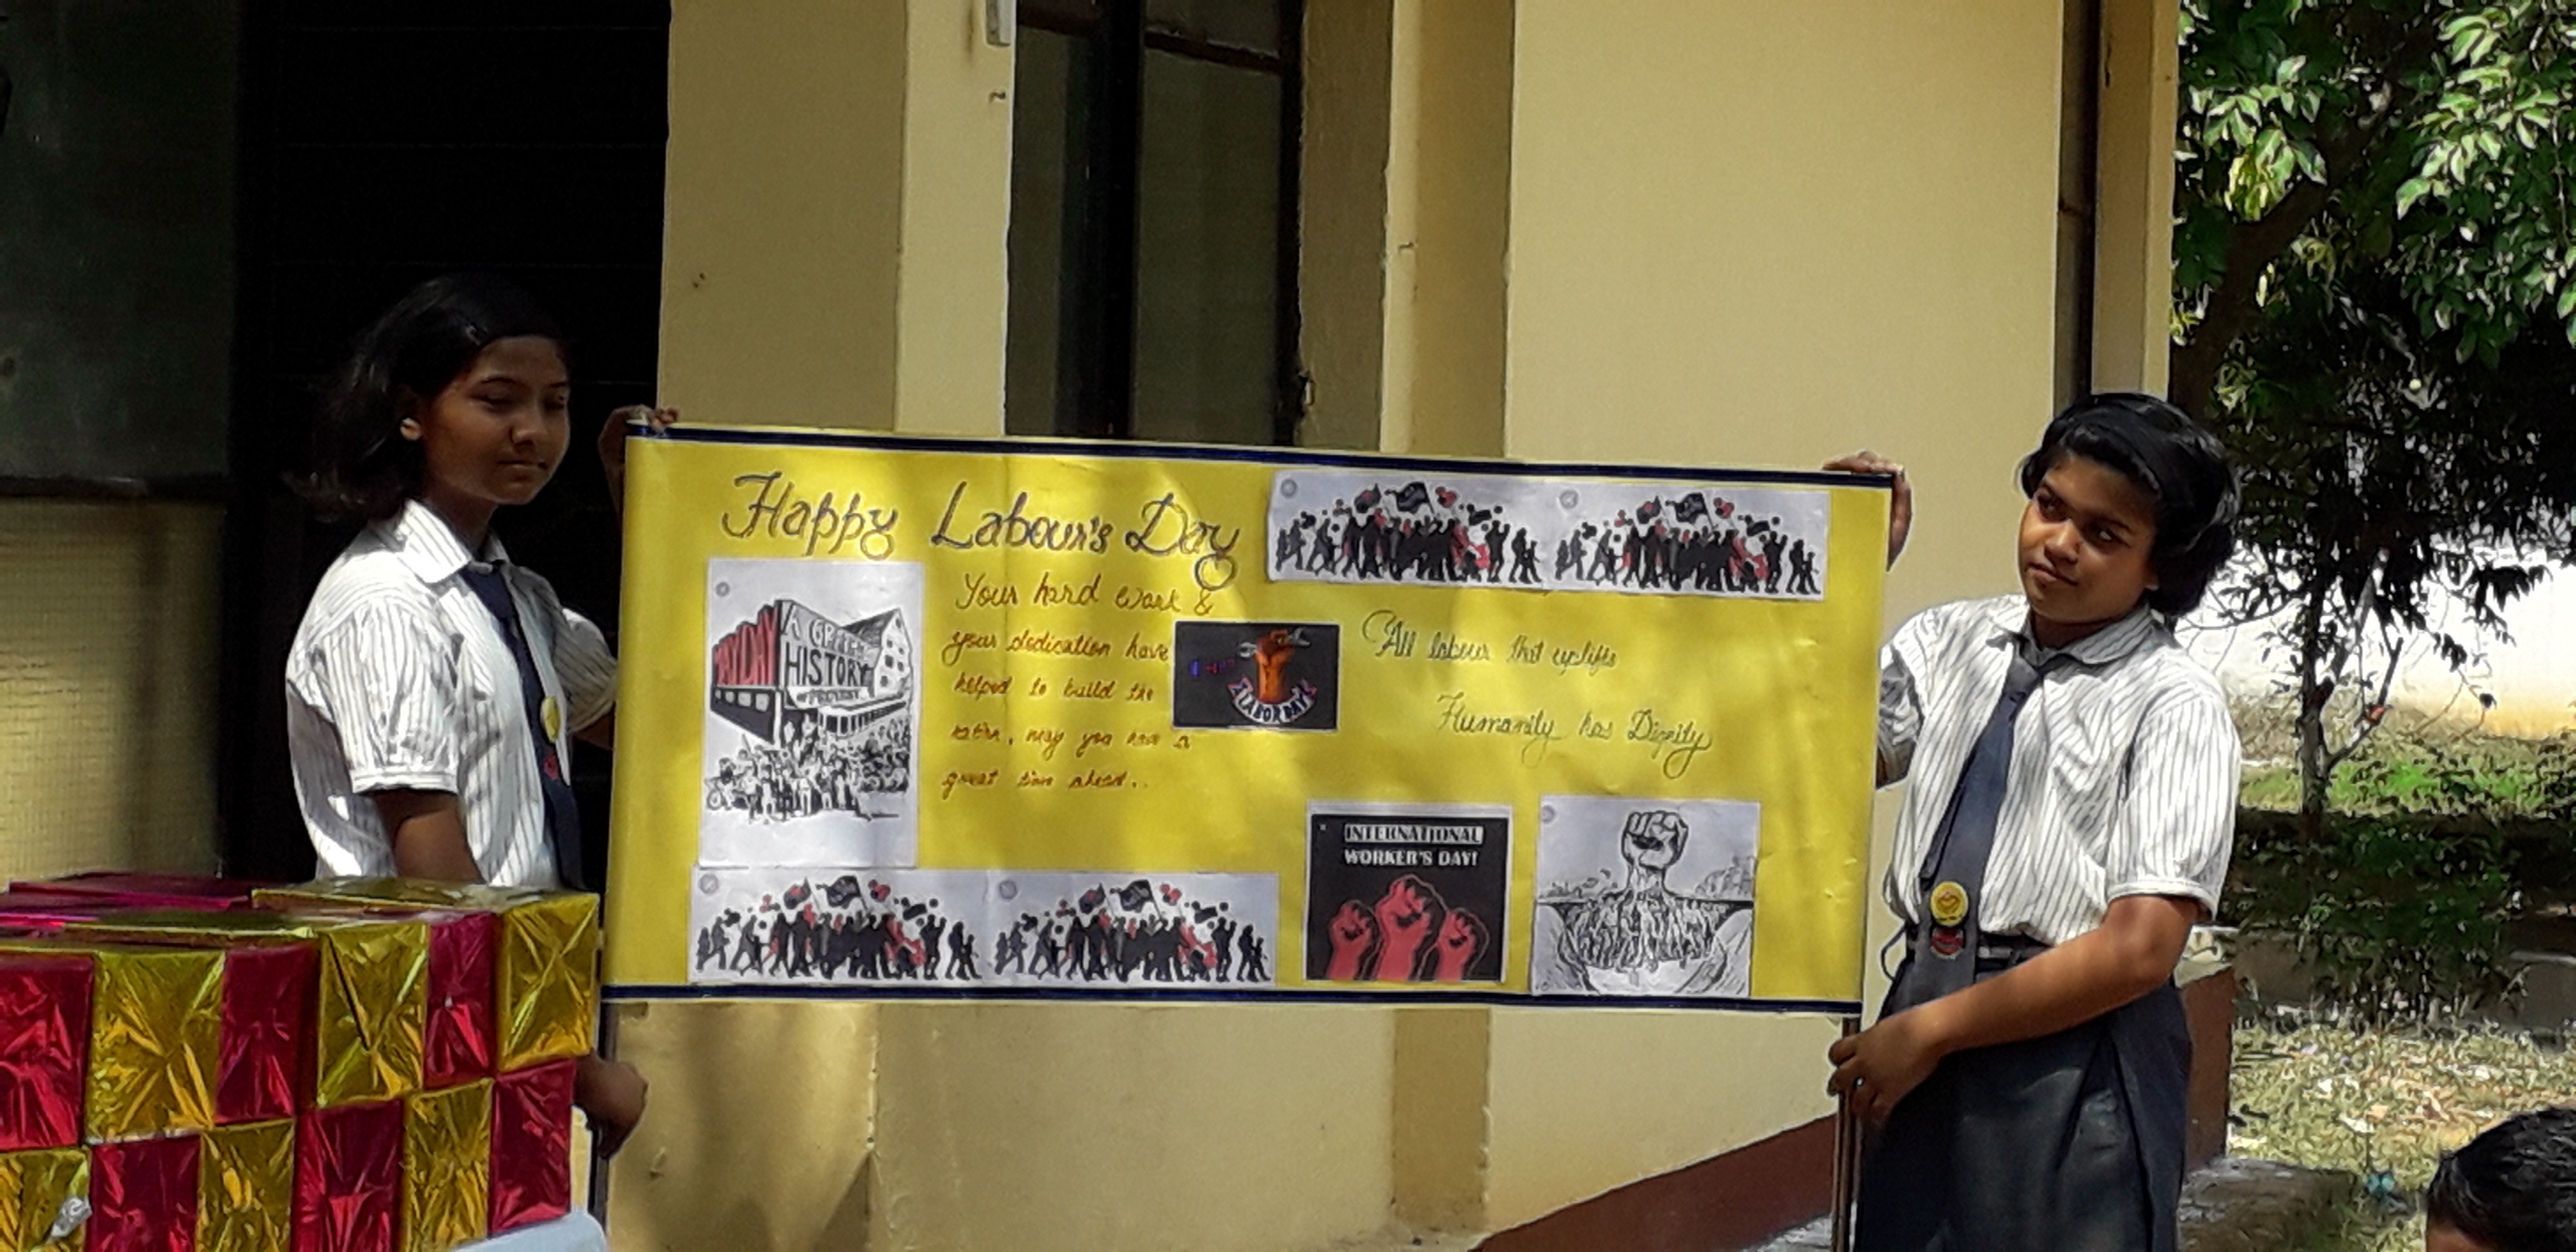 Happy Labour's Day
MAYDAY
A GRAPHIC
HISTORY
OF PROTEST
Your hard work &
your dedication have
helped to build the
nation, may you have a
great time ahead..
LABOR DAY
All labour that uplifts
Humanity has Dignity
INTERNATIONAL
WORKER'S DAY!